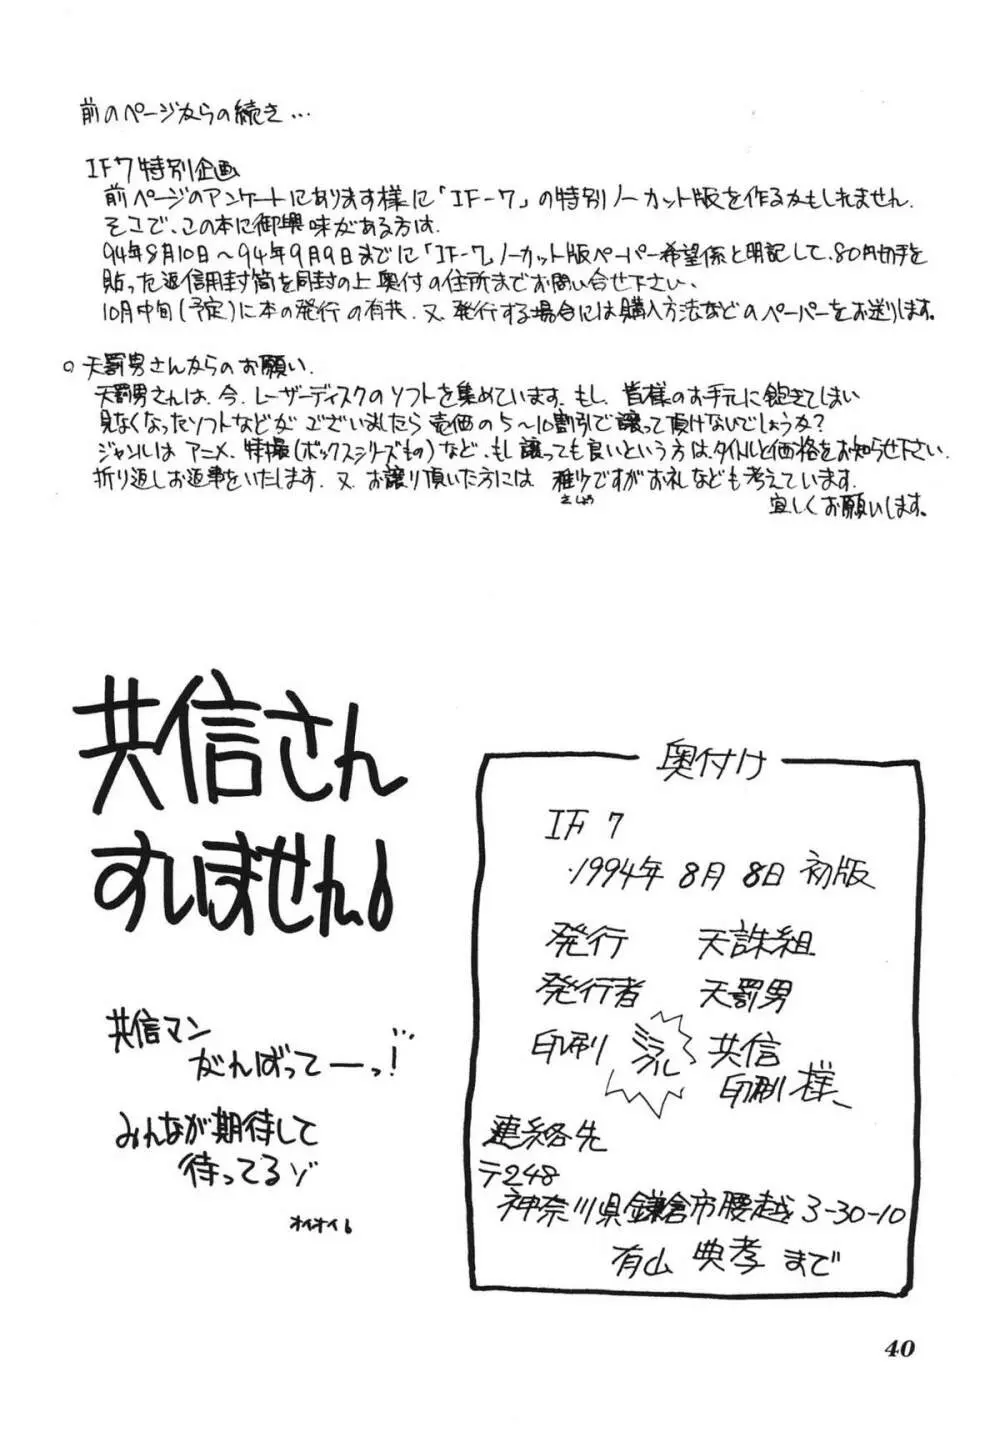 前のページからの続き…
IF7特別企画
前ページのアンケートにあります様に「IF-7」の特別ノーカット版を作るかもしれません.
そこで、この本に御興味がある方は.
94年8月10日〜94年9月9日までに「IF-7」ノーカット版ペーパー希望係と明記して、80円切手を
貼った返信用封筒を同封の上奥付の住所までお問い合せ下さい、
10月中旬(予定)に本の発行の有無、又、発行する場合には購入方法などのペーパーをお送りします。
○天罰男さんからのお願い.
天罰男さんは、今、レーザーディスクのソフトを集めています。もし、皆様のお手元に飽きてしまい
見なくなったソフトなどがございましたら売価の5〜10割引で譲って頂けないでしょうか?
ジャンルはアニメ、特撮(ボックスシリーズもの)など、もし譲っても良いという方は、タイトルと価格をお知らせ下さい.
折り返しお返事をいたします.又、お譲り頂いた方には些少ですがお礼なども考えています.
さしょう
宜しくお願いします。
共信さん
すいません!
共信マン
がんばってーっ!
みんなが期待して
待ってるゾ
オイオイ!
奥付け
IF 7
・1994年8月8日 初版
発行 天誅組
発行者 天罰男
印刷 ミラクル 共信
印刷様、
連絡先
〒248
神奈川県鎌倉市腰越3-30-10
有山 典孝 まで
40